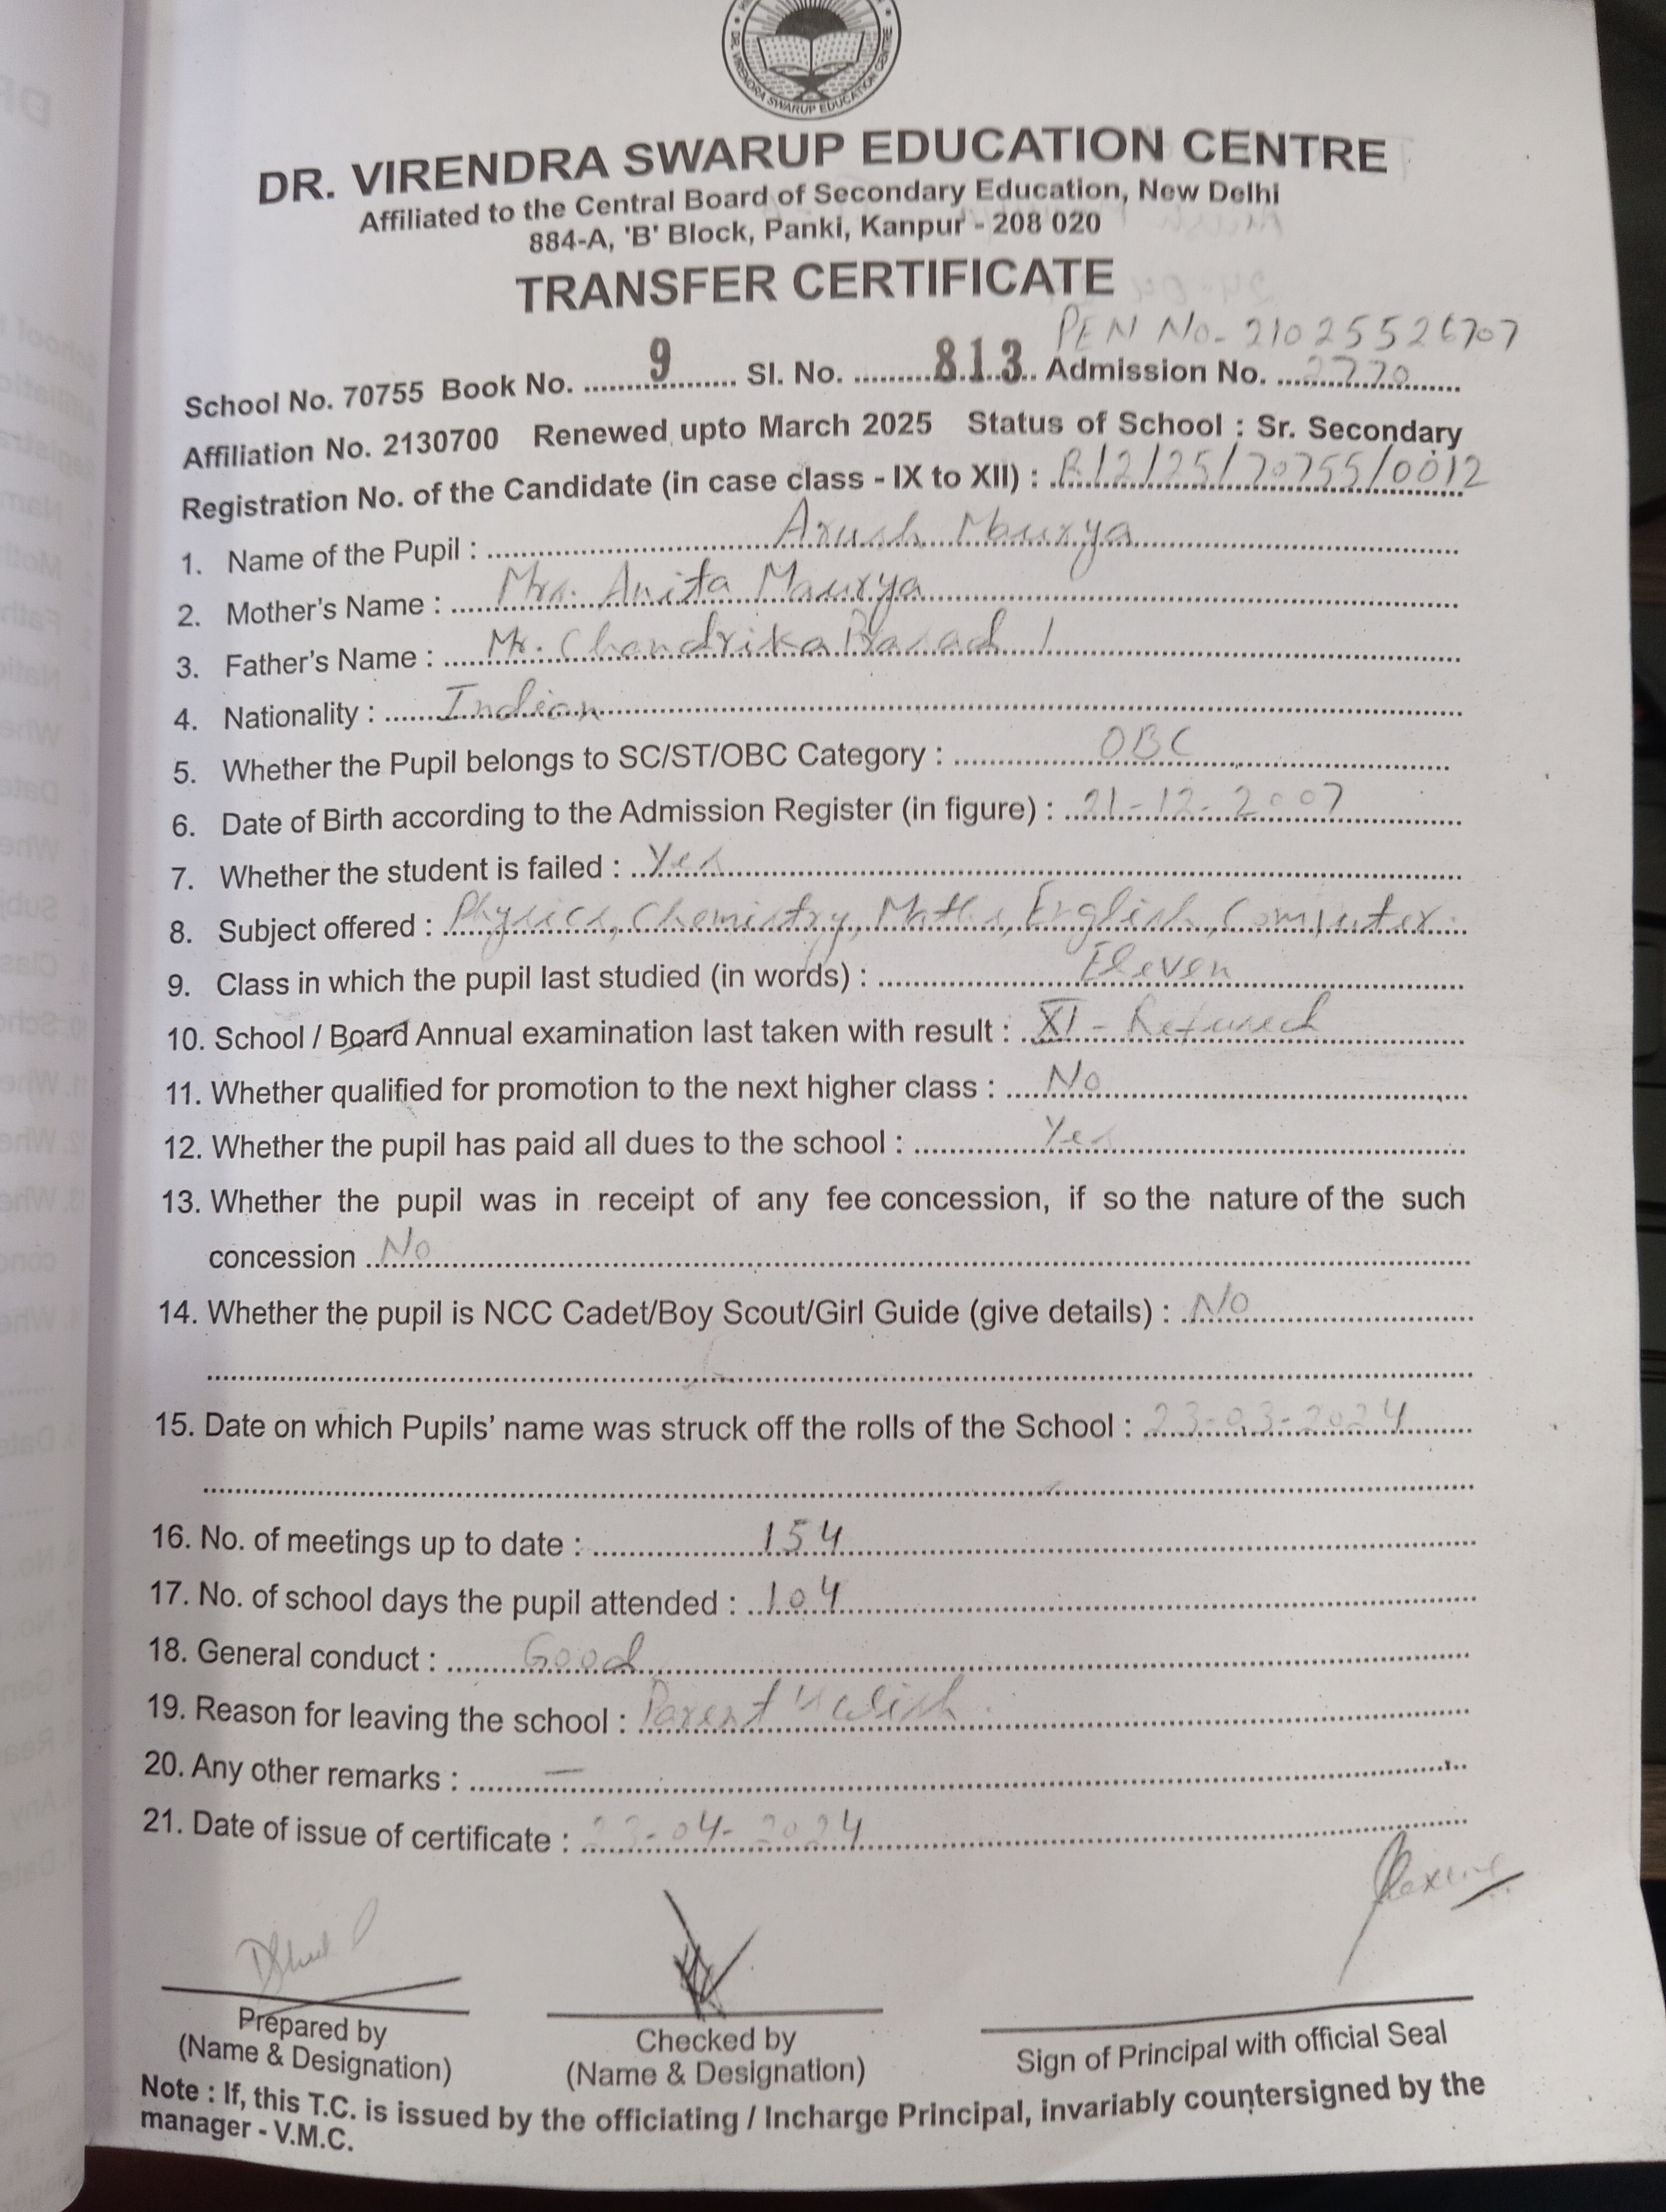 DR. VIRENDRA SWARUP EDUCATION CENTRE
DR. VIRENDRA SWARUP EDUCATION CENTRE
Affiliated to the Central Board of Secondary Education, New Delhi
884-A, 'B' Block, Panki, Kanpur - 208 020
TRANSFER CERTIFICATE
PEN No- 21025526707
School No. 70755 Book No. 9 Sl. No. 813 Admission No. 2770
Affiliation No. 2130700 Renewed upto March 2025 Status of School : Sr. Secondary
Registration No. of the Candidate (in case class - IX to XII) : R/2/25/70755/0012
1. Name of the Pupil : Arush Maurya
2. Mother's Name : Mrs. Anita Maurya
3. Father's Name : Mr. Chandrika Prasad
4. Nationality : Indian
5. Whether the Pupil belongs to SC/ST/OBC Category : OBC
6. Date of Birth according to the Admission Register (in figure) : 21-12-2007
7. Whether the student is failed : Yes
8. Subject offered : Physics, Chemistry, Maths, English, Computer
9. Class in which the pupil last studied (in words) : Eleven
10. School / Board Annual examination last taken with result : XI - Refused
11. Whether qualified for promotion to the next higher class : No
12. Whether the pupil has paid all dues to the school : Yes
13. Whether the pupil was in receipt of any fee concession, if so the nature of the such
concession No
14. Whether the pupil is NCC Cadet/Boy Scout/Girl Guide (give details) : No
15. Date on which Pupils' name was struck off the rolls of the School : 23-03-2024
16. No. of meetings up to date : 154
17. No. of school days the pupil attended : 104
18. General conduct : Good
19. Reason for leaving the school : Parent's wish
20. Any other remarks : —
21. Date of issue of certificate : 23-04-2024
Prepared by
(Name & Designation)
Checked by
(Name & Designation)
Sign of Principal with official Seal
Note : If, this T.C. is issued by the officiating / Incharge Principal, invariably countersigned by the
manager - V.M.C.